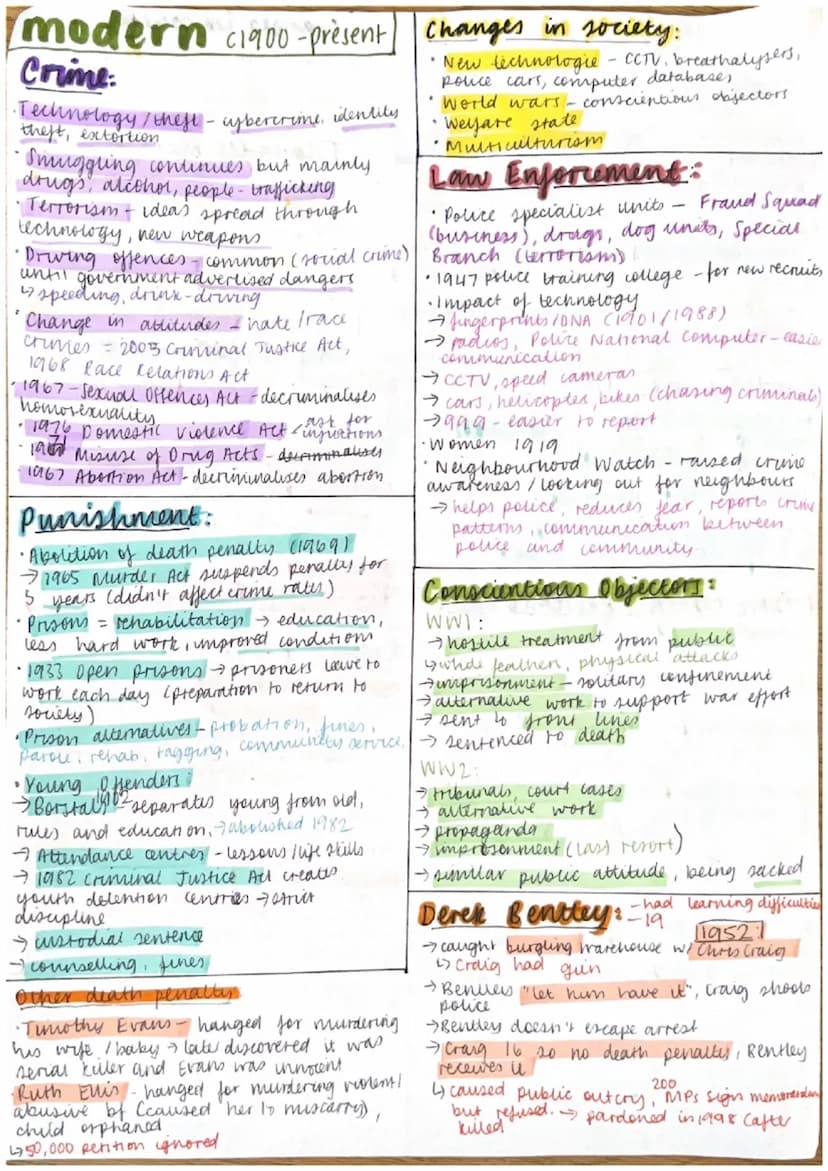 modern c1900 - present
Crime:
· Technology/theft - cybercrime, identity
theft, extortion
· Smuggling continues but mainly
drugs, alcohol, people-trafficking
· Terrorism - ideas spread through
technology, new weapons
· Driving offences - common (social crime)
until government advertised dangers
↳ speeding, drink-driving
· Change in attitudes - hate/race
crimes = 2003 Criminal Justice Act,
1968 Race Relations Act
· 1967 - Sexual Offences Act - decriminalises
homosexuality
· 1976 Domestic Violence Act - ask for
injuctions
· 1971 Misuse of Drug Acts - decriminalises
1967 Abortion Act - decriminalises abortion
Punishment:
· Abolition of death penalty (1969)
→ 1965 Murder Act suspends penalty for
5 years (didn't affect crime rates)
· Prisons = rehabilitation → education,
less hard work, improved conditions
· 1933 Open prisons → prisoners leave to
work each day (preparation to return to
society)
· Prison alternatives - probation, fines,
parole, rehab, tagging, community service,
· Young Offenders:
→ Borstals 1902 - separates young from old,
rules and education, → abolished 1982
→ Attendance centres - lessons/life skills
→ 1982 Criminal Justice Act creates
youth detention centries → strict
discipline
→ custodial sentence
→ counselling, fines
Other death penalty
· Timothy Evans - hanged for murdering
his wife/baby → late discovered it was
serial killer and Evans was innocent
· Ruth Ellis - hanged for murdering violent/
abusive bf (caused her to miscarry),
child orphaned
↳ 50,000 petition ignored
Changes in society:
· New technologie - CCTV, breathalysers,
police cars, computer databases
· World wars - conscientious objectors
· Welfare state
· Multiculturism
Law Enforcement:
· Police specialist units - Fraud Squad
(business), drugs, dog units, Special
Branch (terrorism)
· 1947 police training college - for new recruits
· Impact of technology
→ fingerprints/DNA (1901/1988)
→ radios, Police National Computer - easier
communication
→ CCTV, speed cameras
→ cars, helicopter, bikes (chasing criminals)
→ 999 - easier to report
· Women 1919
· Neighbourhood Watch - raised crime
awareness/looking out for neighbours
→ helps police, reduces fear, reports crime
patterns, communication between
police and community.
Conscientious Objectors:
WW1:
→ hostile treatment from public
↳ white feather, physical attacks
→ imprisonment - solitary confinement
→ alternative work to support war effort
→ sent to front lines
→ sentenced to death
WW2:
→ tribunals, court cases
→ alternative work
→ propaganda
→ improsonment (last resort)
→ similar public attitude, being sacked
Derek Bentley: - had learning difficulties
- 19
1952:
→ caught burgling warehouse w/ Chris Craig
↳ Craig had gun
→ Bentleys "let him have it", Craig shoots
police
→ Bentley doesn't escape arrest
→ Craig 16 so no death penalty, Bentley
receives it
↳ caused public outcry, 200 MPs sign memorandum
but refused. → pardoned in 1998 (after
killed